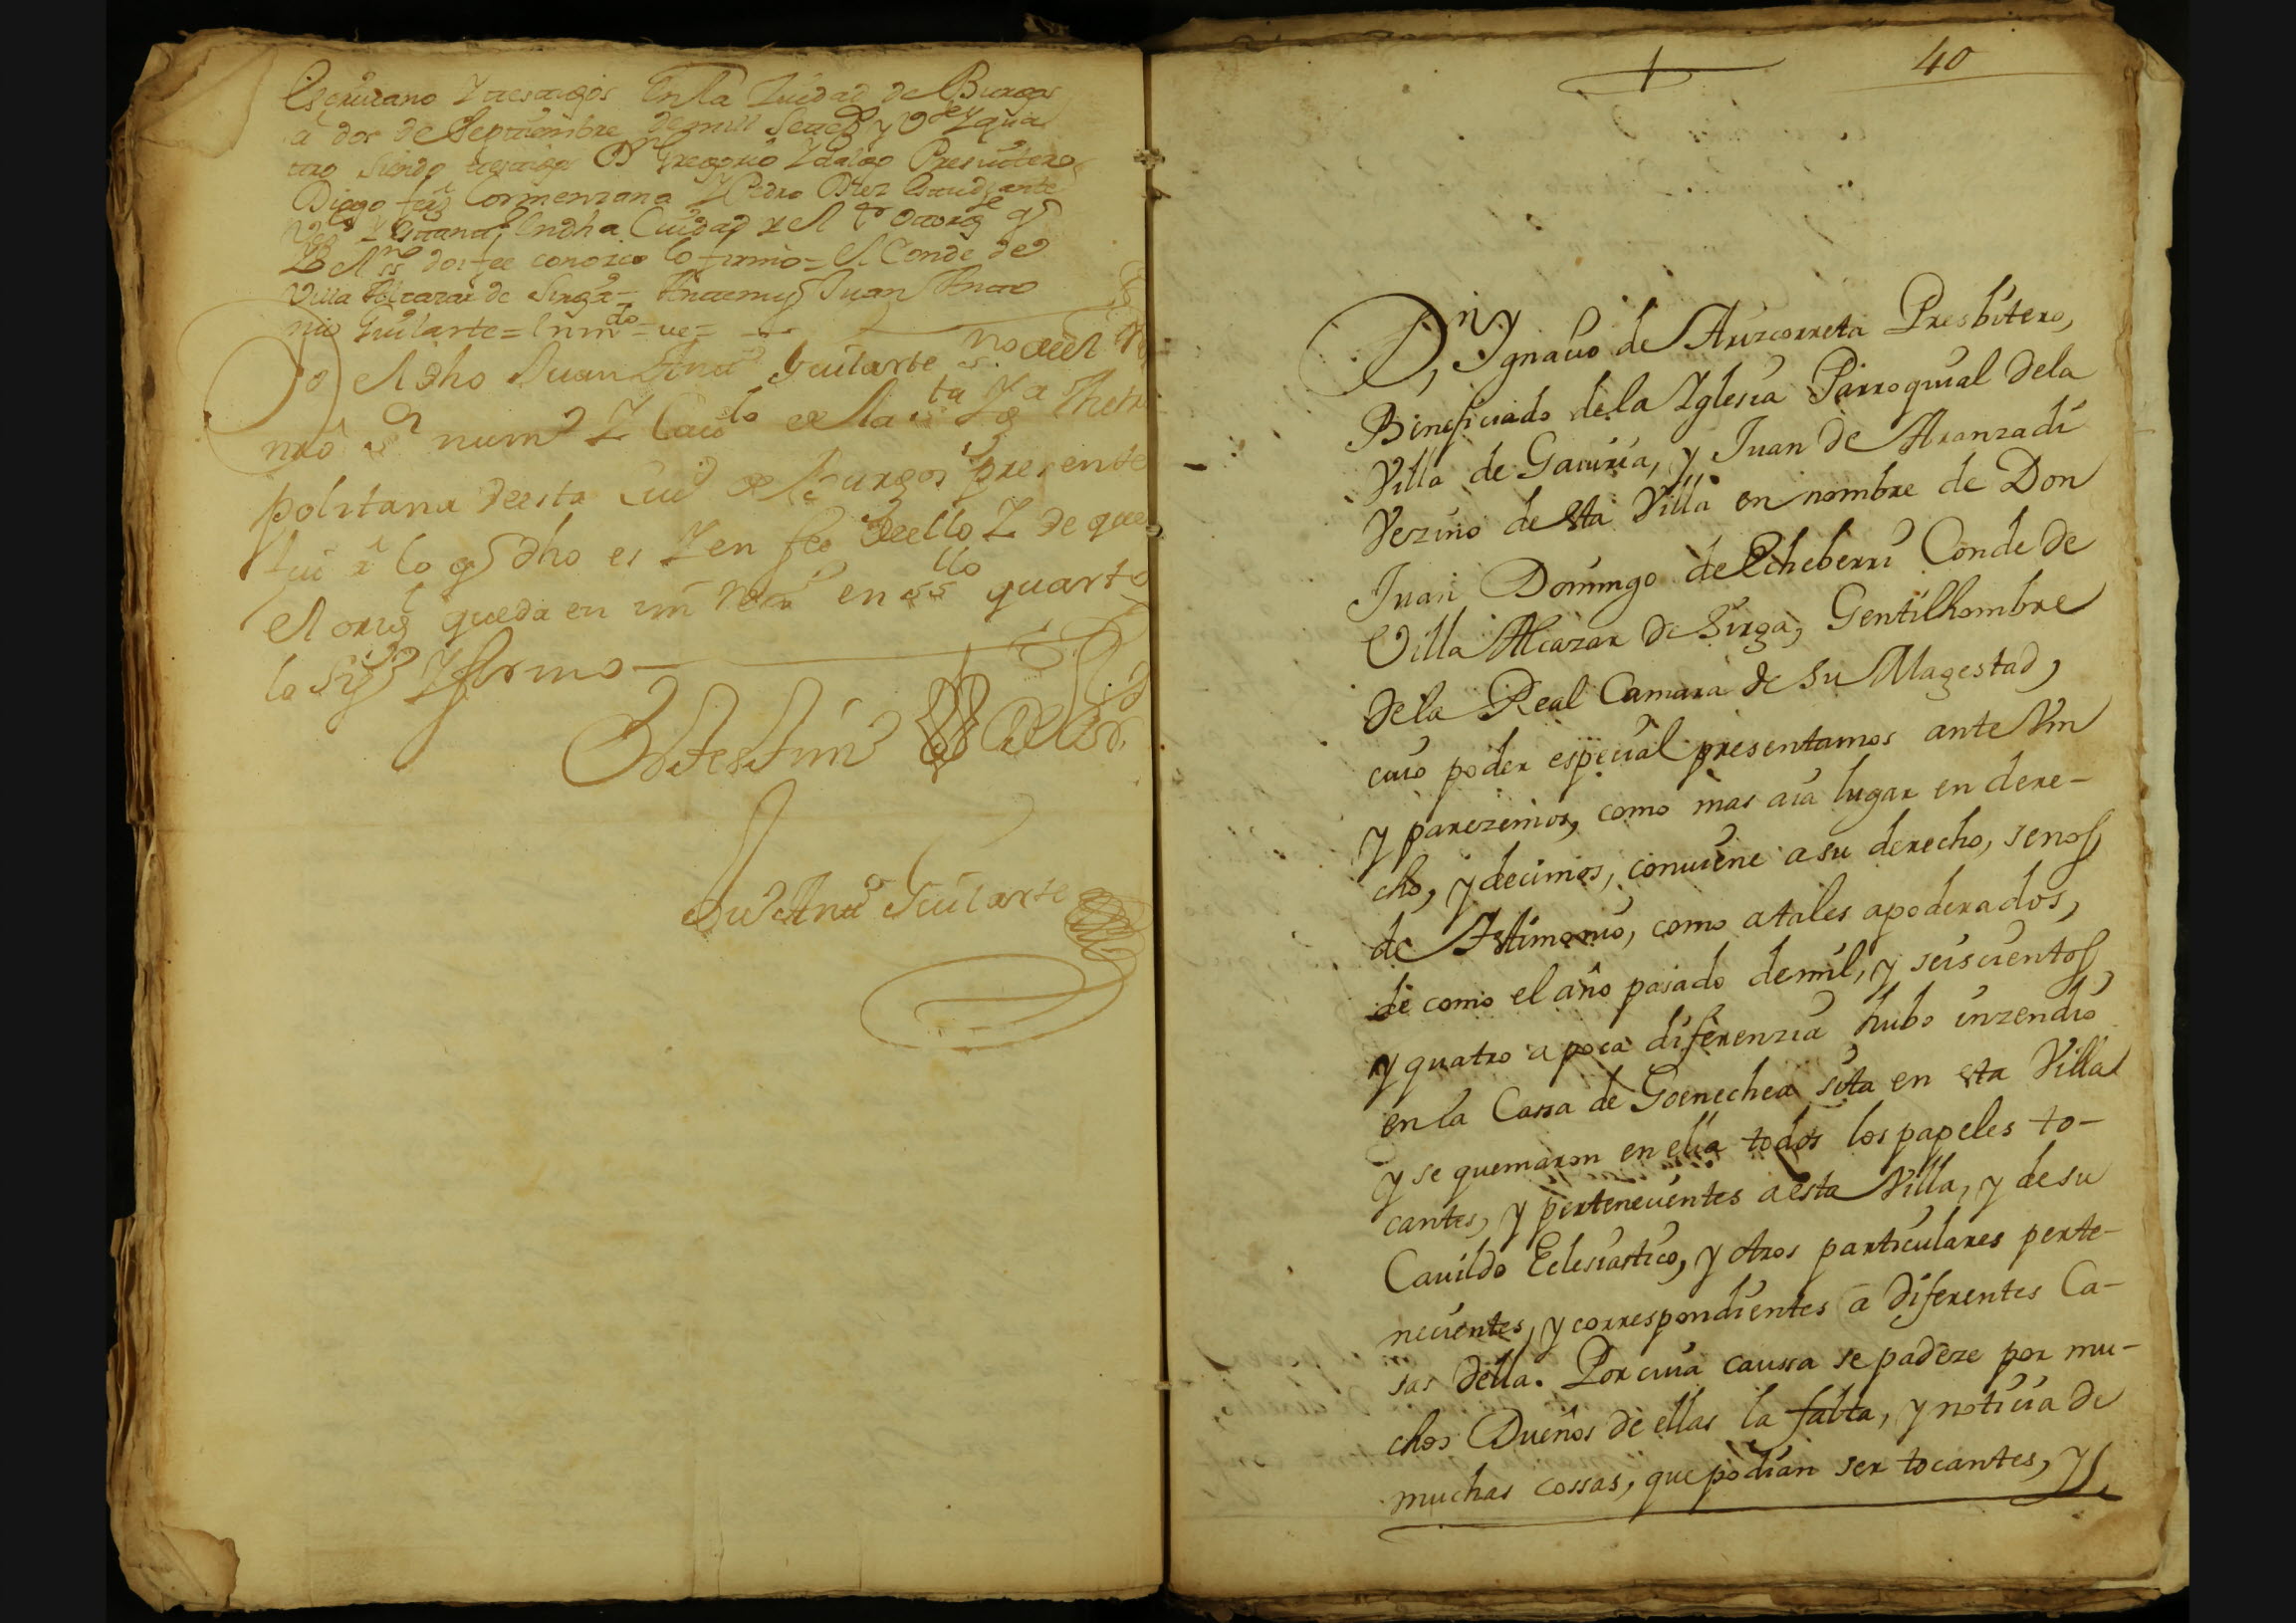 Escriuano y testigos En la Ziudad de Burgos
a dos de Septiembre de mill Settez.os y V.te y qua
tro siendo testigos D.n Gregorio Ydalgo Presuitero
Diego frz Cormenzana y Pedro Diez Estudiante
Vez.os y Estantes En dha Ciudad y el S.or otorg.te q
Yo el ss.no doi fee conozco lo firmo = El Conde de
Villa Alcazar de Sirga = Antemi Juan Anto
nio Guilarte = Enm.do = ue =
Yo el dho Juan Ant.o Guilarte s.no del Rey
nro s.r num.o y Cau.do de la s.ta Yg.a Metro
politana de esta Ciu.d de Burgos presente
fui a lo q dho es y en fee de ello y de que
el orig.l queda en mi rex.o en ss.llo quarto
lo Sig.e y firmo
En testim.o de Verd.
Ju.o Ant.o Guilarte
40
D.n Ygnacio de Aruzcorreta Presbitero,
Beneficiado de la Yglesia Parroquial de la
Villa de Gauiria, y Juan de Aranzadi
Vezino de esta Villa en nombre de Don
Juan Domingo de Echeberri Conde de
Villa Alcazar de Sirga, Gentilhombre
de la Real Camara de Su Magestad,
cuio poder espeçial presentamos ante Vm
y parezemos, como mas aia lugar en dere-
cho, y decimos, conuiene a su derecho, se nos
de Testimonio, como a tales apoderados,
de como el año pasado de mil, y seiscientos,
y quatro a poca diferenzia hubo inzendio
en la Cassa de Goenechea sita en esta Villa
y se quemaron en ella todos los papeles to-
cantes, y pertenecientes a esta Villa, y de su
Cauildo Eclesiastico, y otros particulares perte-
necientes, y correspondientes a diferentes Ca-
sas della. Por cuia caussa se padeze por mu-
chos Dueños de ellas la falta, y noticia de
muchas cossas, que podian ser tocantes, y